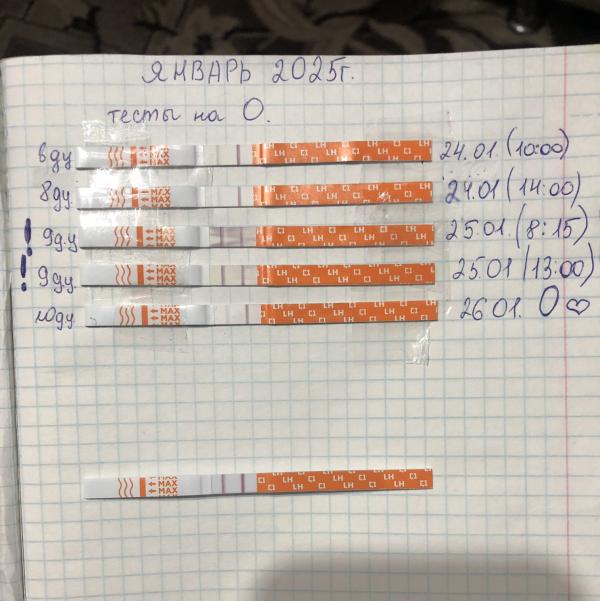 ЯНВАРЬ 2025г.
тесты на О.
8ду MAX MAX LH 24.01. (10:00)
8ду. MAX MAX LH 24.01 (14:00)
! 9д.у MAX MAX LH 25.01. (8:15)
! 9ду. MAX MAX LH 25.01 (13:00)
10ду MAX MAX LH 26.01. О ♡
MAX MAX LH